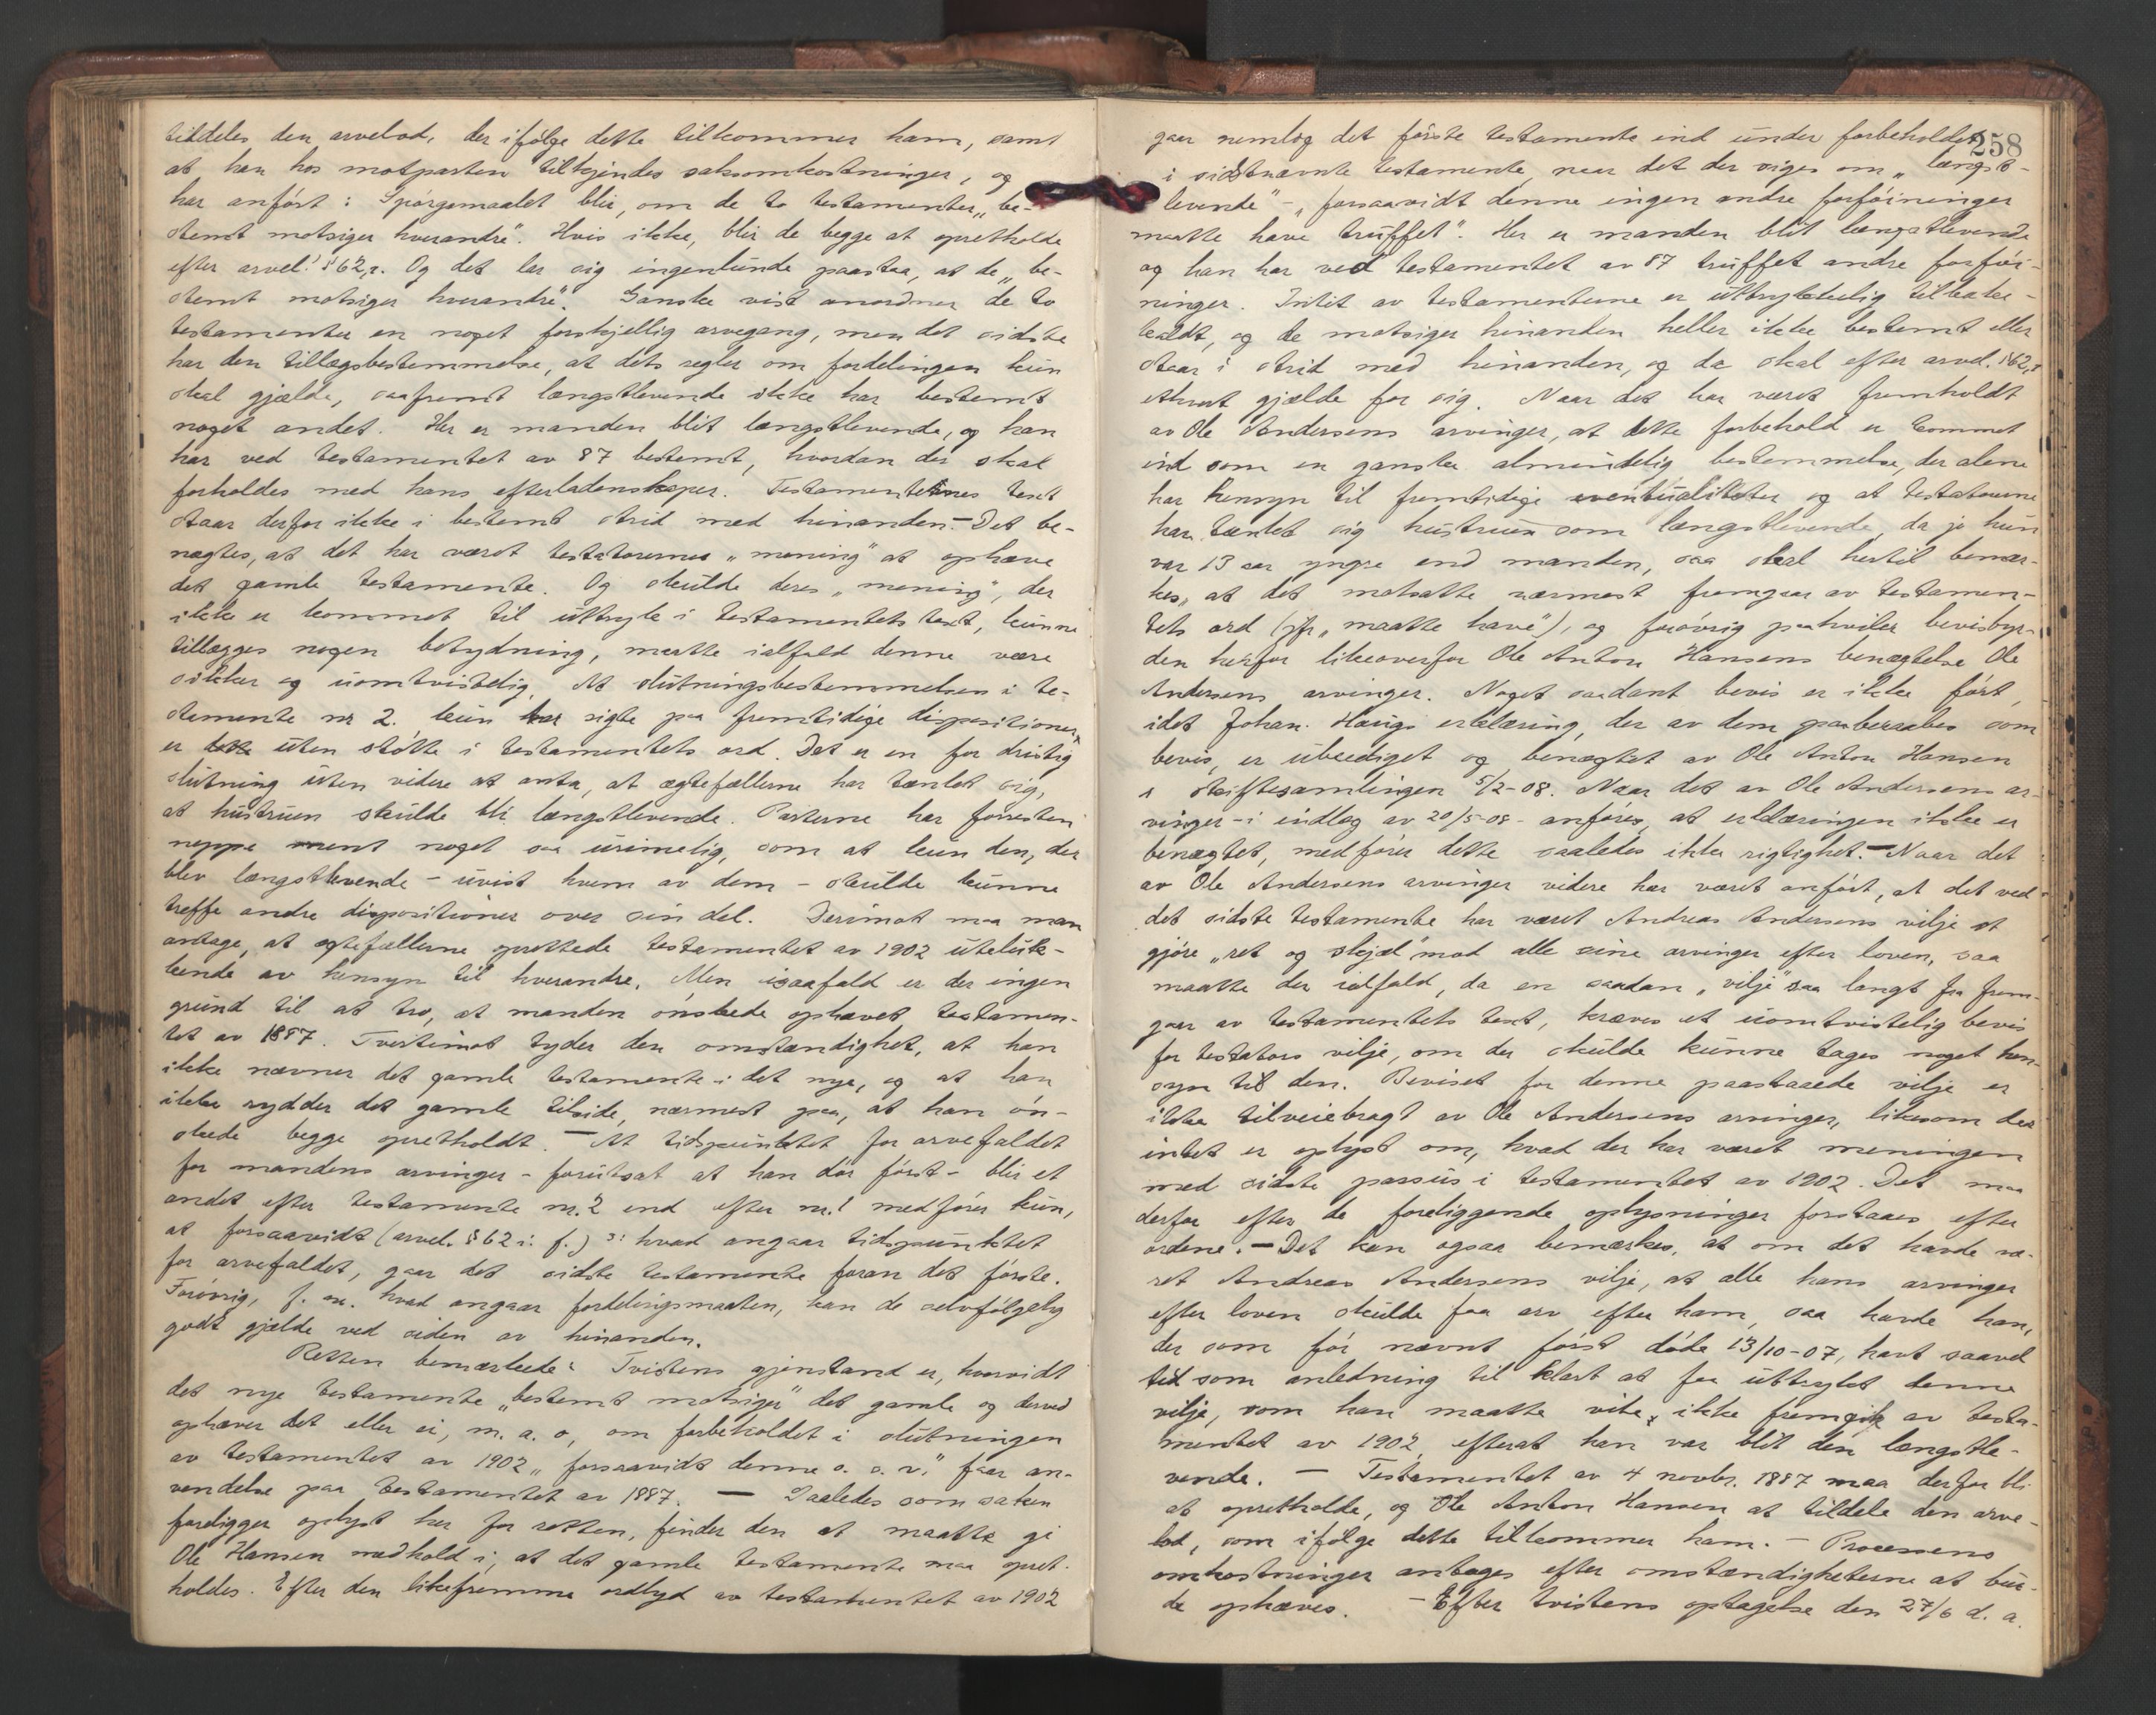 tildeles den arvelod, der ifølge dette tilkommer ham, samt
at han hos motparten tilkjendes saksomkostninger, og
har anført: Spørgsmaalet blir, om de to testamenter „be-
stemt motsiger hverandre". Hvis ikke, blir de begge at opretholde
efter arvel. § 62, 2. Og det lar sig ingenlunde paastaa, at de „be-
stemt motsiger hverandre". Ganske vist anordner de to
testamenter en noget forskjellig arvegang, men det sidste
har den tillægsbestemmelse, at dets regler om fordelingen kun
skal gjælde, saafremt længstlevende ikke har bestemt
noget andet. Her er manden blit længstlevende, og han
har ved testamentet av 87 bestemt, hvordan der skal
forholdes med hans efterladenskaper. Testamenternes text
staar derfor ikke i bestemt strid med hinanden. – Det be-
nægtes, at det har været testatorernes „mening" at ophæve
det gamle testamente. Og skulde deres „mening", der
ikke er kommet til uttryk i testamentets text, kunne
tillægges nogen betydning, maatte ialfald denne være
sikker og uomtvistelig. At slutningsbestemmelsen i te-
stamente nr 2. kun har sigte paa fremtidige dispositioner,
er uten støtte i testamentets ord. Det er en for dristig
slutning uten videre at anta, at ægtefællerne har tænkt sig,
at hustruen skulde bli længstlevende. Parterne har forresten
neppe ment noget saa urimelig, som at kun den, der
blev længstlevende – uvist hvem av dem – skulde kunne
treffe andre dispositioner over sin del. Derimot maa man
antage, at egtefællerne oprettede testamentet av 1902 uteluk-
kende av hensyn til hverandre. Men isaafald er der ingen
grund til at tro, at manden ønskede ophævet testamen-
tet av 1887. Tvertimot tyder den omstændighet, at han
ikke nævner det gamle testamente i det nye, og at han
ikke rydder det gamle tilside, nærmest paa, at han øn-
skede begge opretholdt. – At tidspunktet for arvefaldet
for mandens arvinger – forutsat at han dør først – blir et
andet efter testamente nr. 2 end efter nr. 1 medfører kun,
at forsaavidt (arvel. § 62 i. f.) ɔ: hvad angaar tidspunktet
for arvefaldet, gaar det sidste testamente foran det første.
Forøvrig, f. ex. hvad angaar fordelingsmaaten, kan de selvfølgelig
godt gjælde ved siden av hinanden.
Retten bemærkede: Tvistens gjenstand er, hvorvidt
det nye testamente „bestemt motsiger" det gamle og derved
ophæver det eller ei, m. a. o, om forbeholdet i slutningen
av testamentet av 1902 „forsaavidt denne o. s. v." faar an-
vendelse paa testamentet av 1887. – Saaledes som saken
foreligger oplyst her for retten, finder den at maatte gi
Ole Hansen medhold i, at det gamle testamente maa opret-
holdes. Efter den likefremme ordlyd av testamentet av 1902
258
gaar nemlig det første testamente ind under forbeholdet
i sidstnævnte testamente, naar det der siges om „længst-
levende" – „forsaavidt denne ingen andre forføininger
maatte have truffet". Her er manden blit længstlevende
og han har ved testamentet av 87 truffet andre forføi-
ninger. Intet av testamenterne er uttrykkelig tilbake-
kaldt, og de motsiger hinanden heller ikke bestemt eller
staar i strid med hinanden, og da skal efter arvel. § 62, 2
ethvert gjælde for sig. Naar det har været fremholdt
av Ole Andersens arvinger, at dette forbehold er kommet
ind som en ganske almindelig bestemmelse, der alene
har hensyn til fremtidige eventualiteter og at testatorerne
har tænkt sig hustruen som længstlevende, da jo hun
var 13 aar yngre end manden, saa skal hertil bemær-
kes, at det motsatte nærmest fremgaar av testamen-
tets ord (jfr „maatte have"), og forøvrig paahviler bevisbyr-
den herfor likeoverfor Ole Anton Hansens benægtelse Ole
Andersens arvinger. Noget saadant bevis er ikke ført,
idet Johan Haugs erklæring, der av dem paaberaabes som
bevis, er ubeediget og benægtet av Ole Anton Hansen
i skiftesamlingen 5/2-08. Naar det av Ole Andersens ar-
vinger – i indlæg av 20/5-08 – anføres, at erklæringen ikke er
benægtet, medfører dette saaledes ikke rigtighet. – Naar det
av Ole Andersens arvinger videre har været anført, at det ved
det sidste testamente har været Andreas Andersens vilje at
gjøre „ret og skjæl" mod alle sine arvinger efter loven, saa
maatte der ialfald, da en saadan „vilje" saa langt fra frem-
gaar av testamentets text, kræves et uomtvistelig bevis
for testators vilje, om der skulde kunne tages noget hen-
syn til den. Beviset for denne paastaaede vilje er
ikke tilveiebragt av Ole Andersens arvinger, likesom der
intet er oplyst om, hvad der har været meningen
med sidste passus i testamentet av 1902. Det maa
derfor efter de foreliggende oplysninger forstaaes efter
ordene. – Det kan ogsaa bemærkes, at om det havde væ-
ret Andreas Andersens vilje, at alle hans arvinger
efter loven skulde faa arv efter ham, saa havde han,
der som før nævnt først døde 13/10-07, havt saavel
tid som anledning til klart at faa uttrykt denne
vilje, som han maatte vite, ikke fremgik av testa-
mentet av 1902, efterat han var blit den længstle-
vende. – Testamentet av 4 novbr. 1887 maa derfor bli
at opretholde, og Ole Anton Hansen at tildele den arve-
lod, som ifølge dette tilkommer ham. – Processens
omkostninger antages efter omstændigheterne at bur-
de ophæves. – Efter tvistens optagelse den 27/6 d. a.